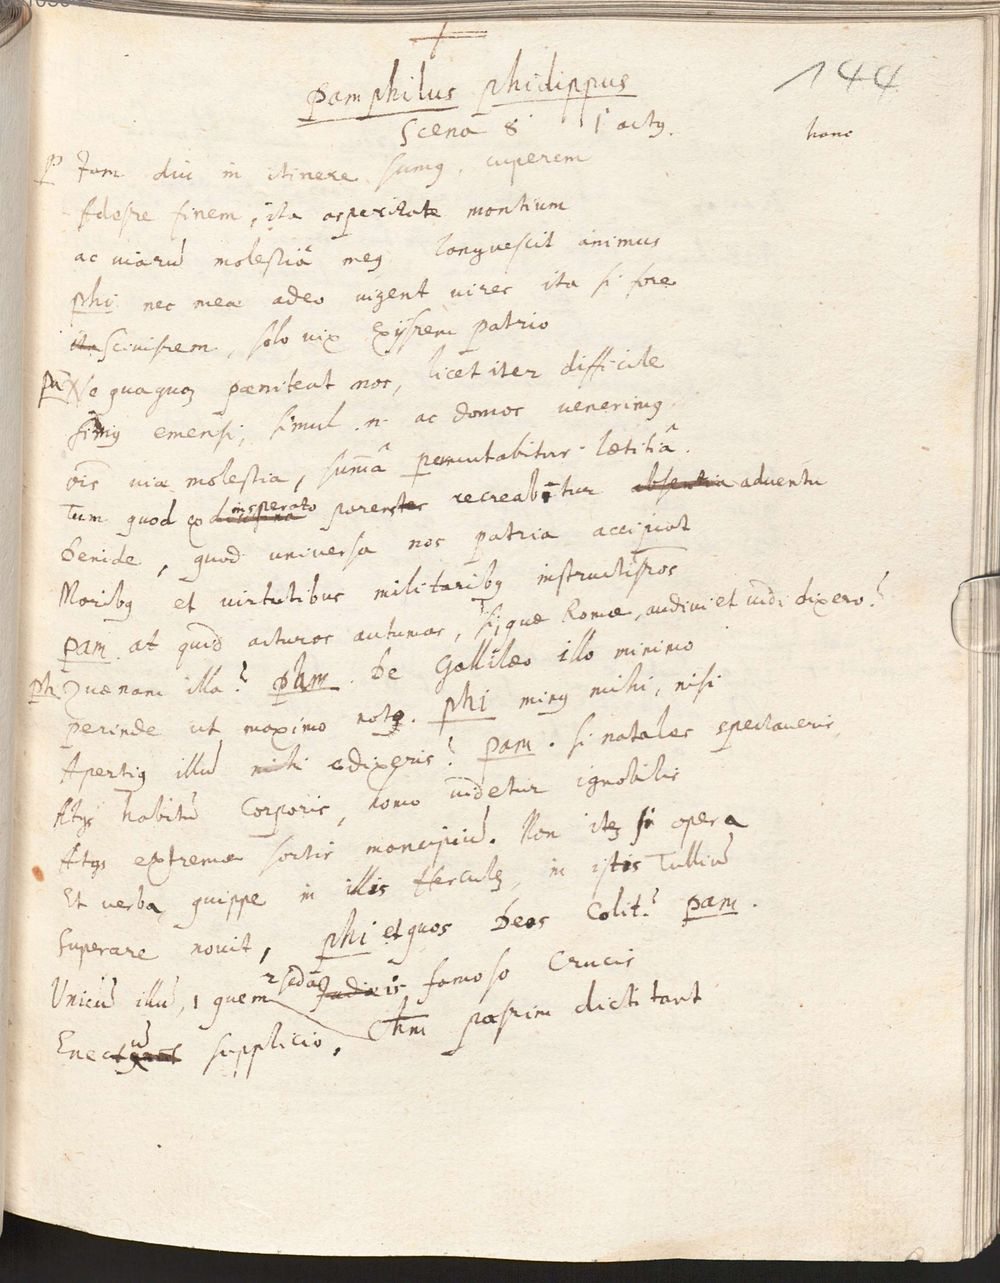 144
Pamphilus Phidippus
Scena 8 1 actꝯ.
hanc
P Jam diu in itinere sumꝯ, cuperem
Adesse finem, ita asperitate montium
ac viarū molestiâ meꝯ languescit animus
Phi nec meæ adeo vigent vires ita si fore
ita scivissem, solo vix exijssem patrio
Pa Ne quaquaꝫ pæniteat nos, licet iter difficile
simꝯ emensi, simul .n. ac domos venerimꝯ
oīs viæ molestia, sum̄a permutabitur lætitiâ.
Tum quod ex diutina insperato parentes recreabitur absentia adventu
Deinde, quod universa nos patria accipiat
Moribꝯ et virtutibus militaribꝯ instructissos
Pam. at quid acturos autumas, si, quæ Romæ, audivi et vidi dixero?
Ph Quænam illa? Pam. De Gallilæo illo minimo
perinde ut maximo notꝯ. Phi minꝯ mihi, nisi
Apertiꝯ illū mihi edixeris? Pam. si natales spectaveris,
Atqꝫ habitū Corporis, homo videtur ignobilis
Atqꝫ extremæ sortis mancipiū. Non iteꝫ si opera
Et verba, quippe in illis Herculeꝫ, in istis Tulliū
Superare novit, Phi et quos Deos Colit? Pam.
Unicū illū, 1 quem 2 Judæis famoso Crucis
Enectū supplicio, Chrm passim dictitant